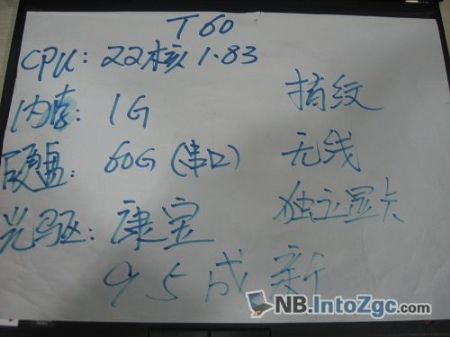 T60
CPU: 22核 1.83
内存: 1G 指纹
硬盘: 60G (串口) 无线
光驱: 康宝 独立显卡
95成新
NB.IntoZgc.com